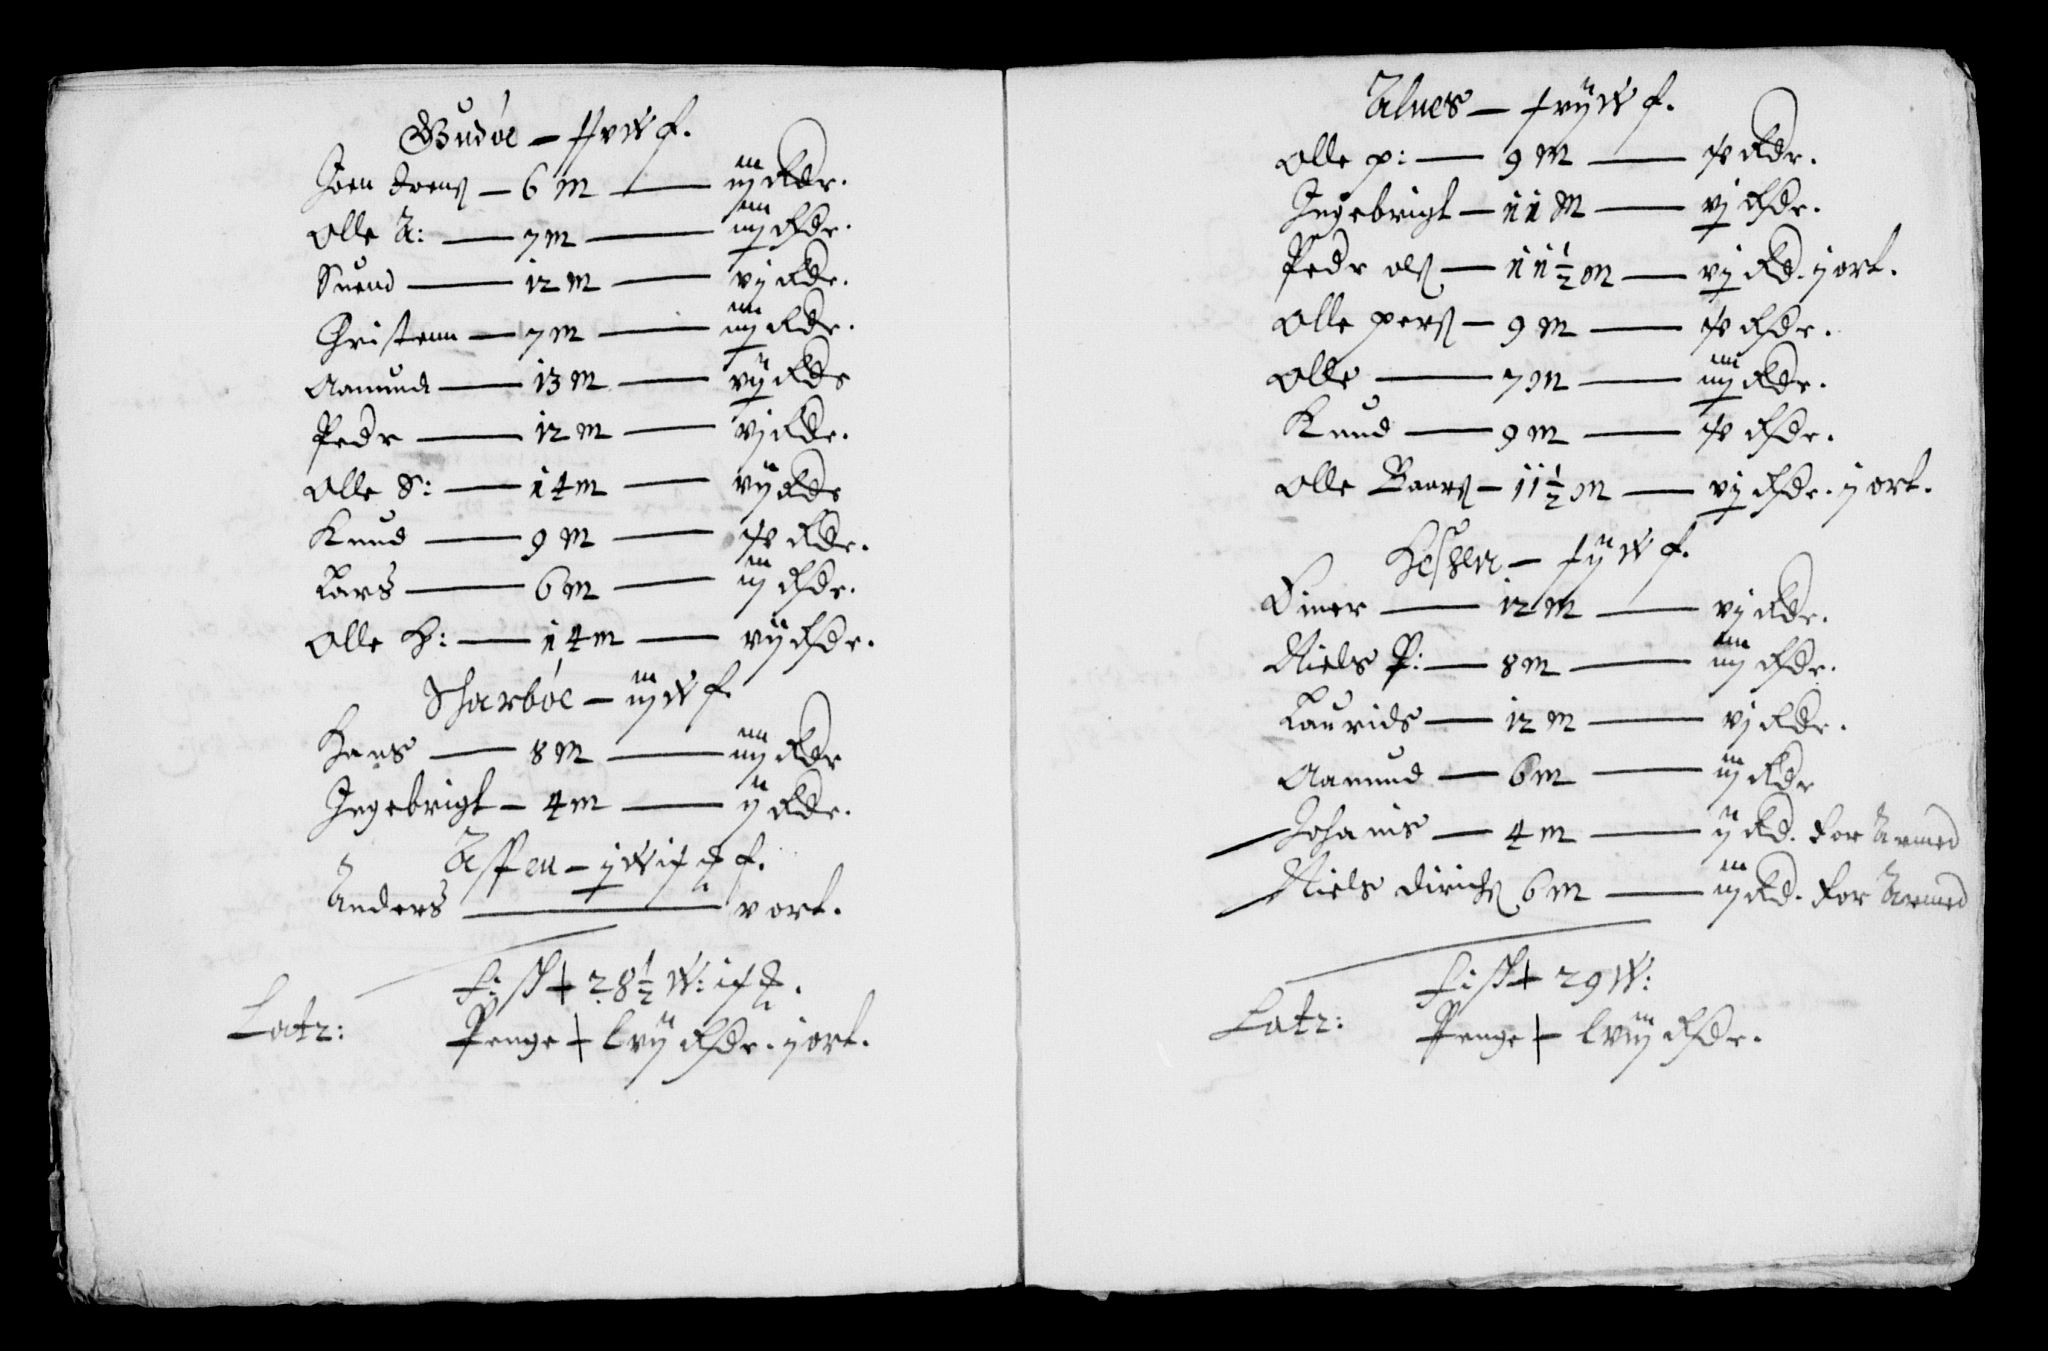 Gudøe — xxv W f.
Joen Ivers — 6 M — iij Rdr.
Olle A: — 7 M — iiij Rdr.
Suend — 12 M — vj Rdr.
Christenn — 7 M — iiij Rdr.
Aamund — 13 M — vij Rdr
Pedr — 12 M — vj Rdr.
Olle S: — 14 M — vij Rdr
Knud — 9 M — Rdr.
Lars — 6 M — iij Rdr.
Olle H: — 14 M — vij Rdr.
Skarbøe — iij W f.
Hans — 8 M — iiij Rdr
Ingebrigt — 4 M — ij Rdr.
Assen — W f.
Anders — v ort.
Fisk + 28½ W:
Latr: Penge + lvij Rdr. j ort.
Alnes — xvij W f.
Olle p: — 9 M — Rdr.
Ingebrigt — 11 M — vj Rdr.
Pedr ols — 11½ M — vj Rd. j ort.
Olle pers — 9 M — Rdr.
Olle — 7 M — iiij Rdr.
Knud — 9 M — Rdr.
Olle Baars — 11½ M — vj Rdr. j ort.
— xij W f.
Einer — 12 M — vj Rdr.
Niels P: — 8 M — iiij Rdr.
Laurids — 12 M — vj Rdr.
Aamund — 6 M — iij Rdr
Johanis — 4 M — ij Rd. for Armed
Niels dirichs 6 M — iij Rd. for Armed
Fisk + 29 W:
Latr: Penge + lviij Rdr.